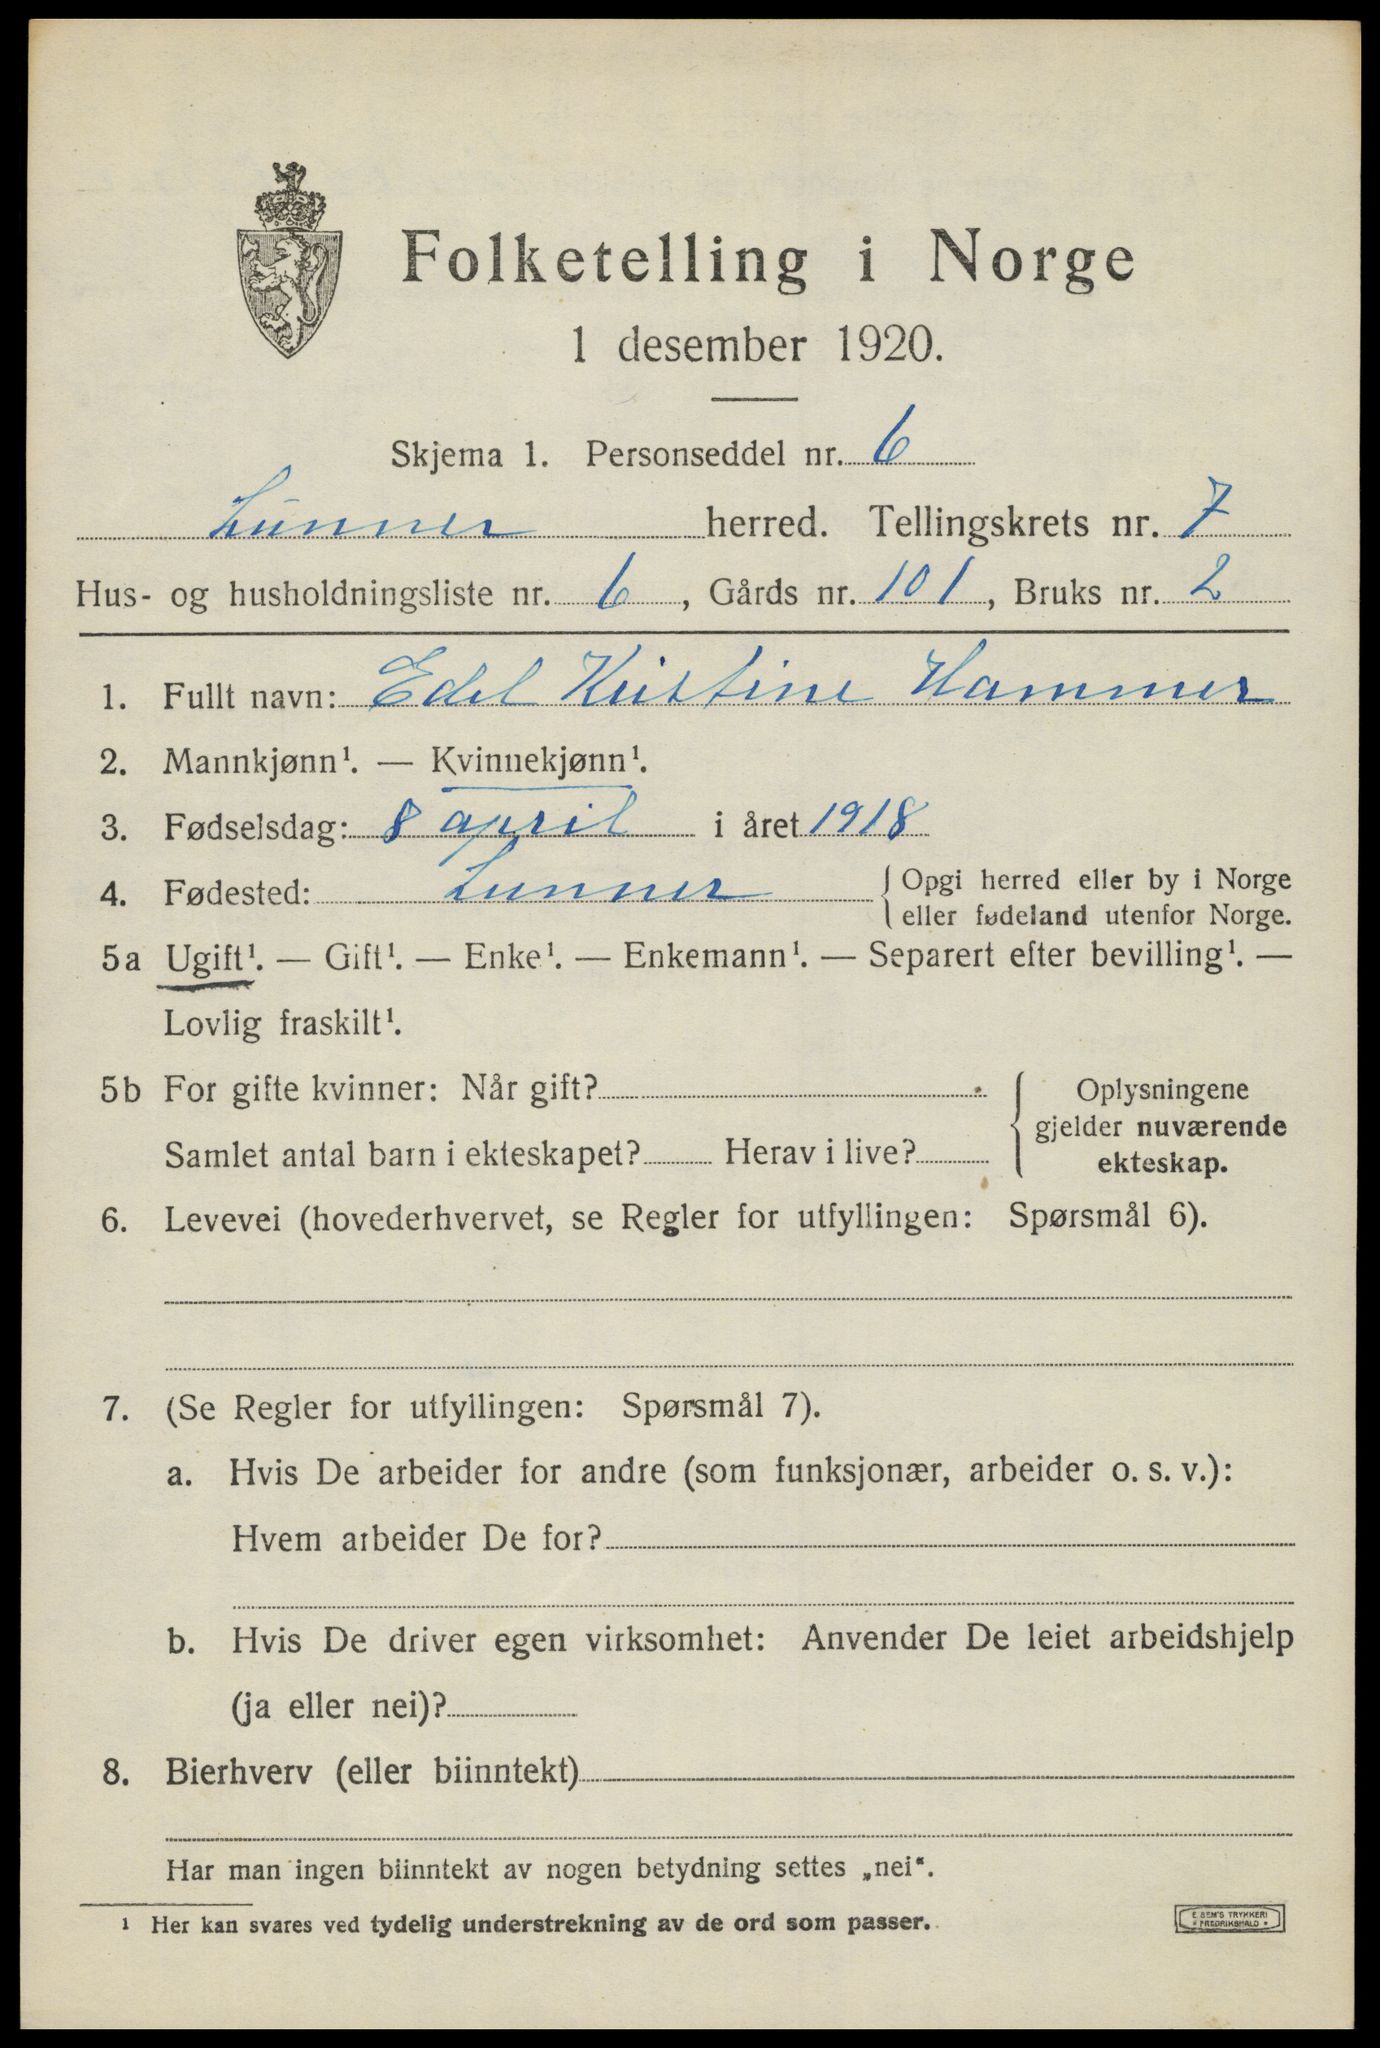 Folketelling i Norge
1 desember 1920.
Skjema 1. Personseddel nr. 6
Lunner herred. Tellingskrets nr. 7
Hus- og husholdningsliste nr. 6, Gårds nr. 101, Bruks nr. 2
1. Fullt navn: Edel Kristine Hammer
2. Mannkjønn¹. — Kvinnekjønn¹.
3. Fødselsdag: 8 april i året 1918
4. Fødested: Lunner { Opgi herred eller by i Norge
eller fødeland utenfor Norge.
5a Ugift¹. — Gift¹. — Enke¹. — Enkemann¹. — Separert efter bevilling¹. —
Lovlig fraskilt¹.
5b For gifte kvinner: Når gift? { Oplysningene
gjelder nuværende
Samlet antal barn i ekteskapet? Herav i live? ekteskap.
6. Levevei (hovederhvervet, se Regler for utfyllingen: Spørsmål 6).
7. (Se Regler for utfyllingen: Spørsmål 7).
a. Hvis De arbeider for andre (som funksjonær, arbeider o. s. v.):
Hvem arbeider De for?
b. Hvis De driver egen virksomhet: Anvender De leiet arbeidshjelp
(ja eller nei)?
8. Bierhverv (eller biinntekt)
Har man ingen biinntekt av nogen betydning settes „nei“.
¹ Her kan svares ved tydelig understrekning av de ord som passer.
E. SEM'S TRYKKERI
* FREDRIKSHALD *